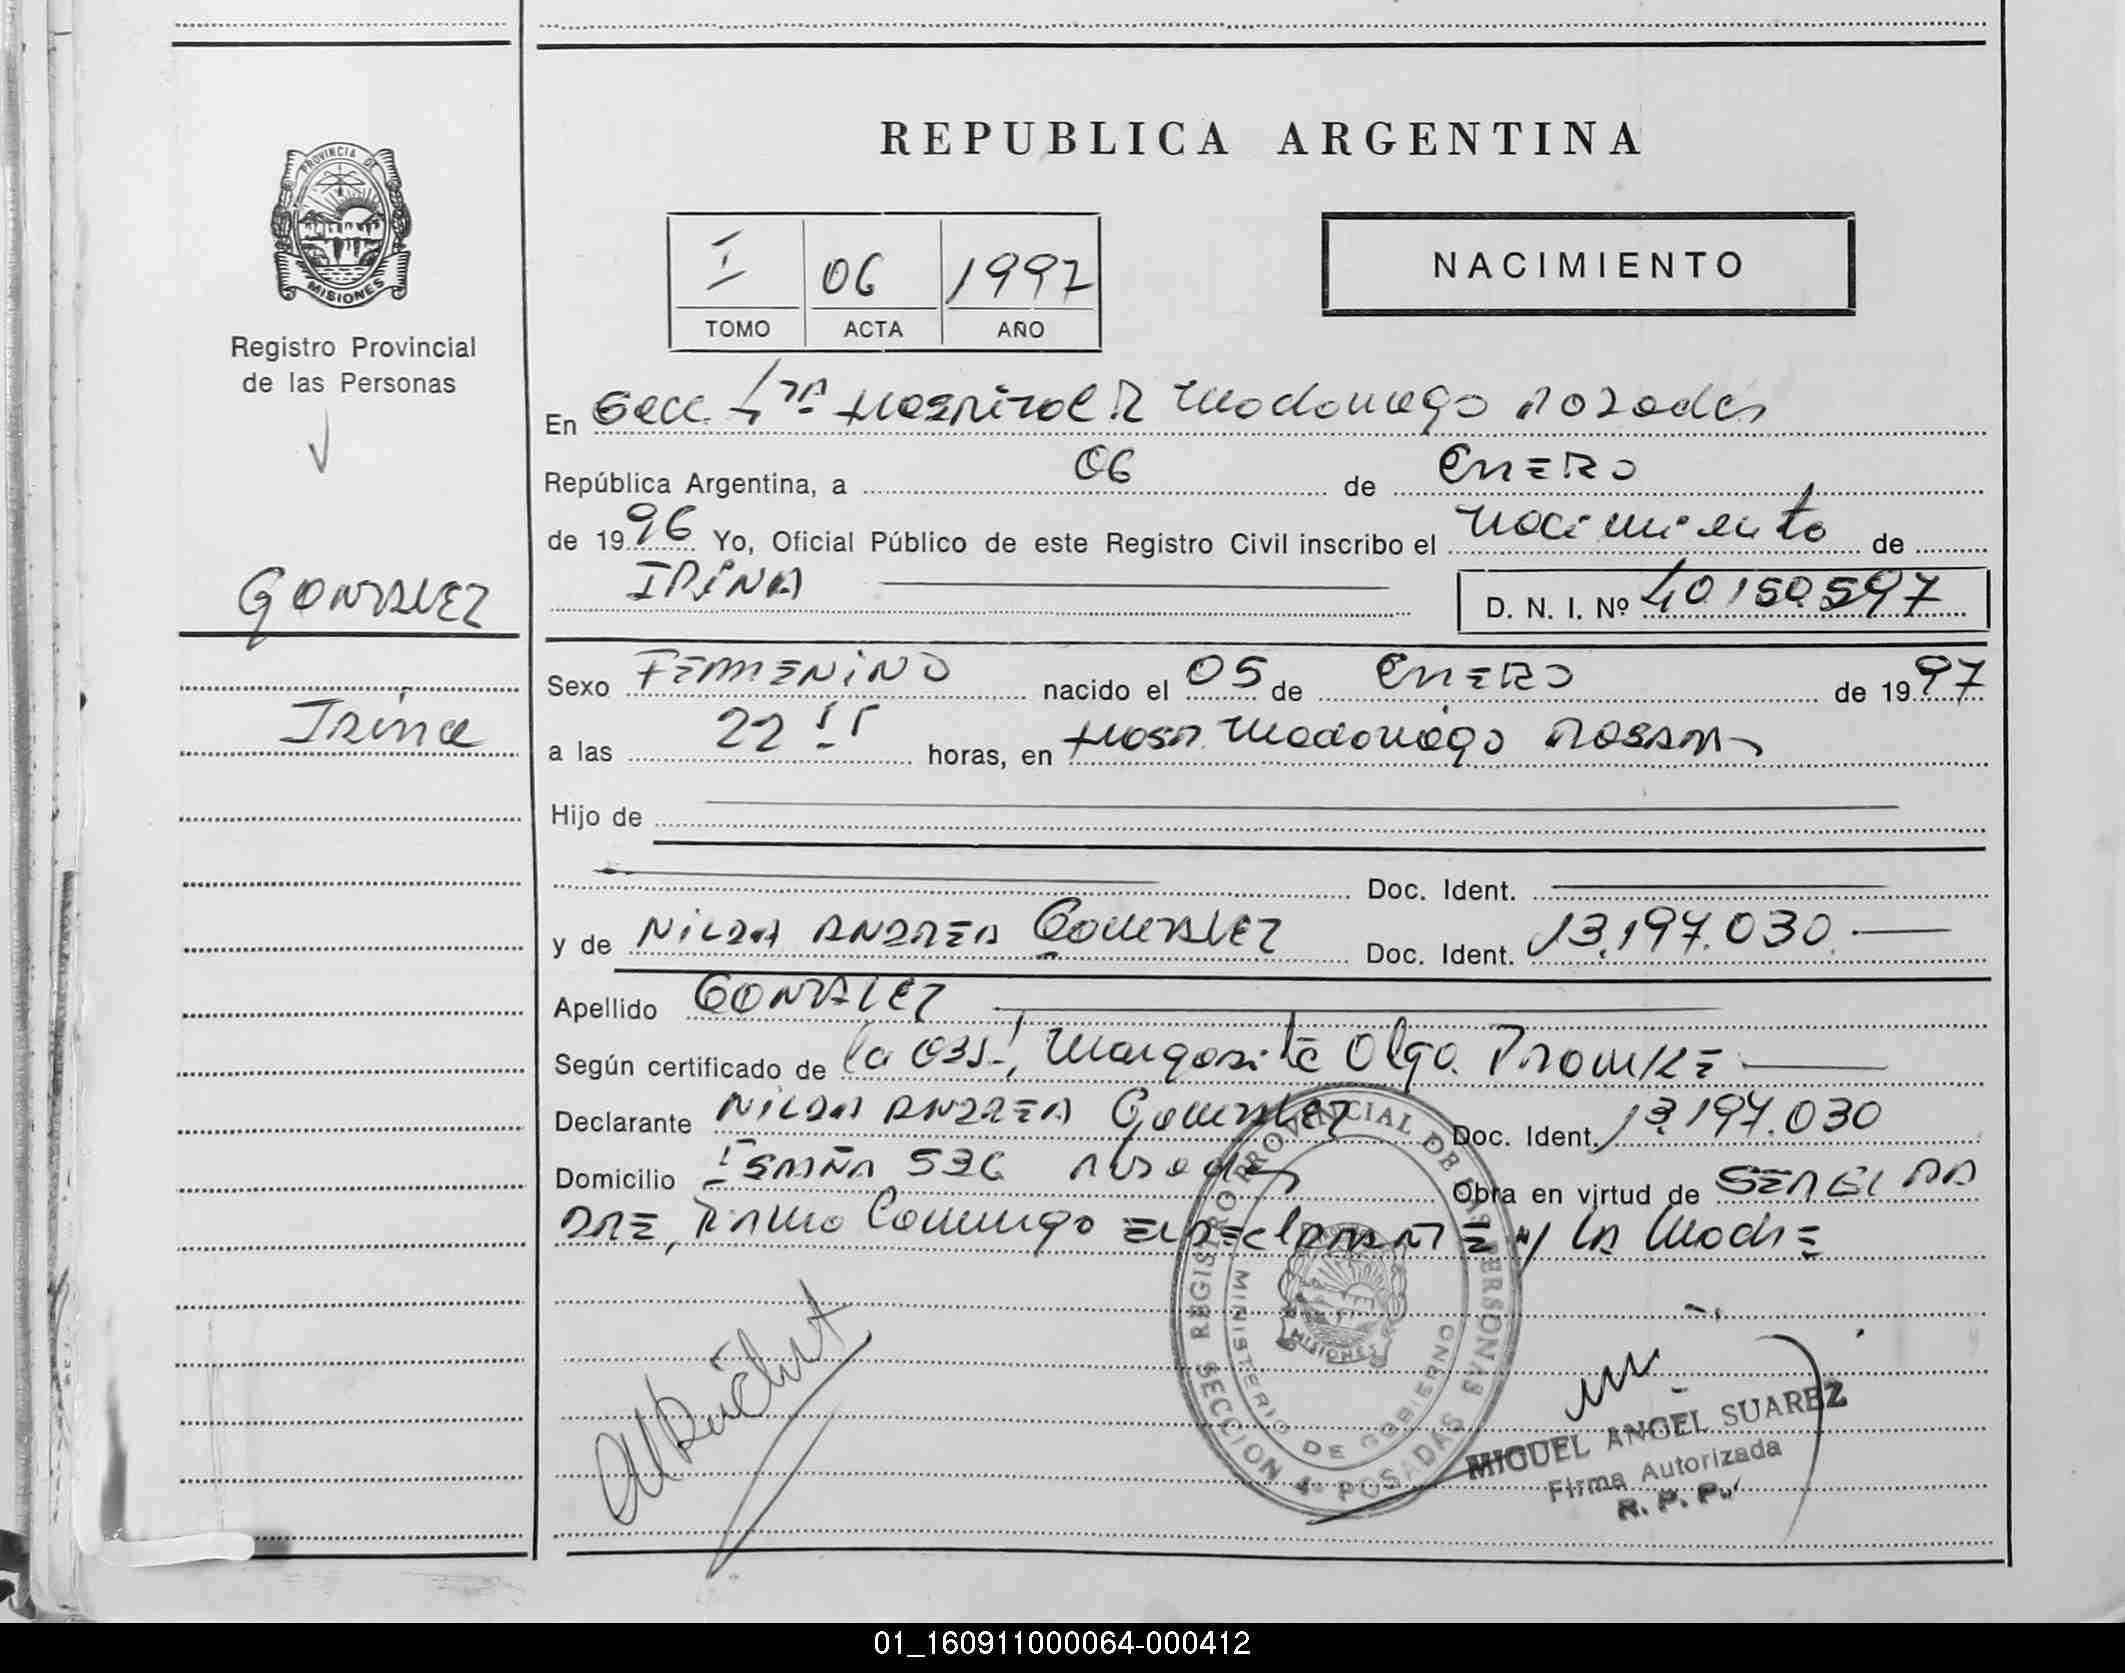 PROVINCIA DE
MISIONES
Registro Provincial
de las Personas
GONZALEZ
Irina
REPUBLICA ARGENTINA
I 06 1997
TOMO ACTA AÑO
NACIMIENTO
En Secc. 4ta Hospital R Madariaga Posadas
República Argentina, a 06 de ENERO
de 1996 Yo, Oficial Público de este Registro Civil inscribo el nacimiento de
IRINA D. N. I. Nº 40.150.597
Sexo FEMENINO nacido el 05 de ENERO de 1997
a las 22 horas, en Hosp. Madariaga Posadas
Hijo de
Doc. Ident.
y de NILDA ANDREA GONZALEZ Doc. Ident. 13.197.030.
Apellido GONZALEZ
Según certificado de la Obst, Margarita Olga
Declarante NILDA ANDREA Gonzalez Doc. Ident. 13.197.030
Domicilio ESPAÑA 536 Posadas Obra en virtud de SER EL PA
DRE, Firma Conmigo EL DECLARANTE y LA Madre
REGISTRO PROVINCIAL DE LAS PERSONAS
MINISTERIO DE GOBIERNO
MISIONES
SECCION 4ª POSADAS
MIGUEL ANGEL SUAREZ
Firma Autorizada
R. P. P.
01_160911000064-000412